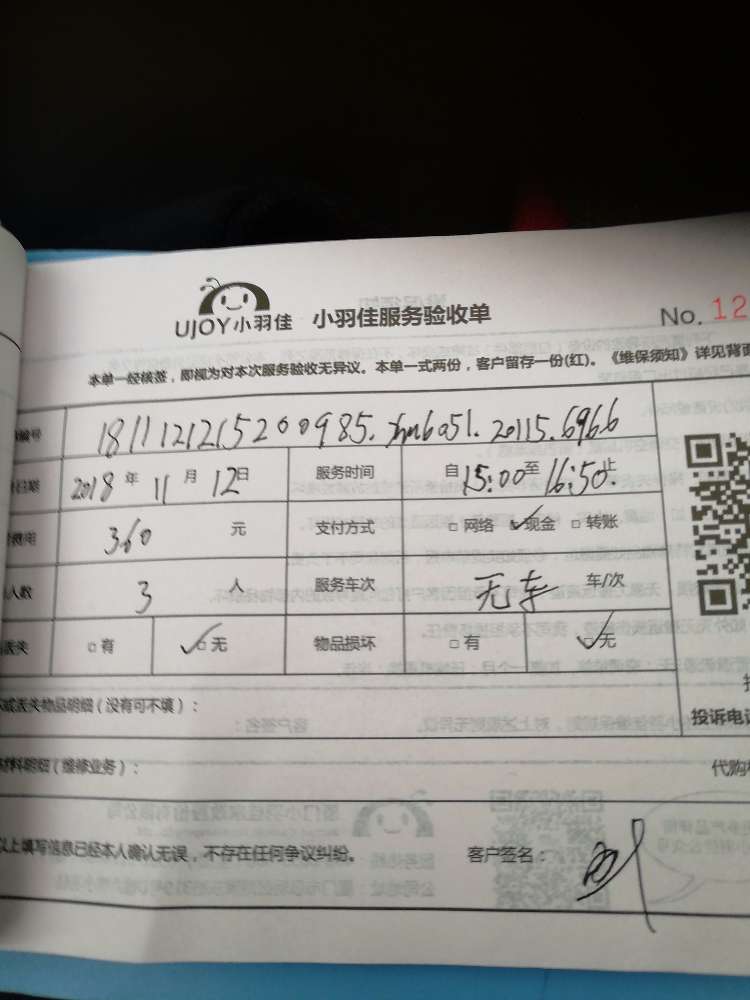 UJOY小羽佳 小羽佳服务验收单 No. 12
本单一经核签，即视为对本次服务验收无异议。本单一式两份，客户留存一份(红)。《维保须知》详见背面
编号
日期 2018 年 11 月 12日 服务时间 自15:00至16:50止
费用 360 元 支付方式 网络 现金 转账
人数 3 人 服务车次 无车 车/次
丢失 有 无 物品损坏 有 无
或丢失物品明细（没有可不填）：
投诉电话
材料明细（维修业务）： 代购
以上填写信息已经本人确认无误，不存在任何争议纠纷。 客户签名：